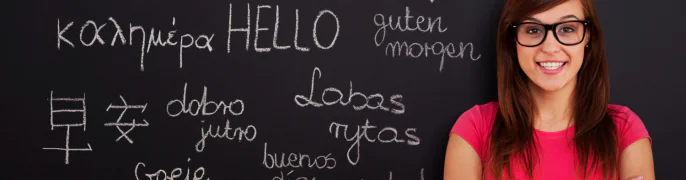 καλημέρα
HELLO
guten
morgen
早安
dobro
jutro
Labas
rytas
buenos